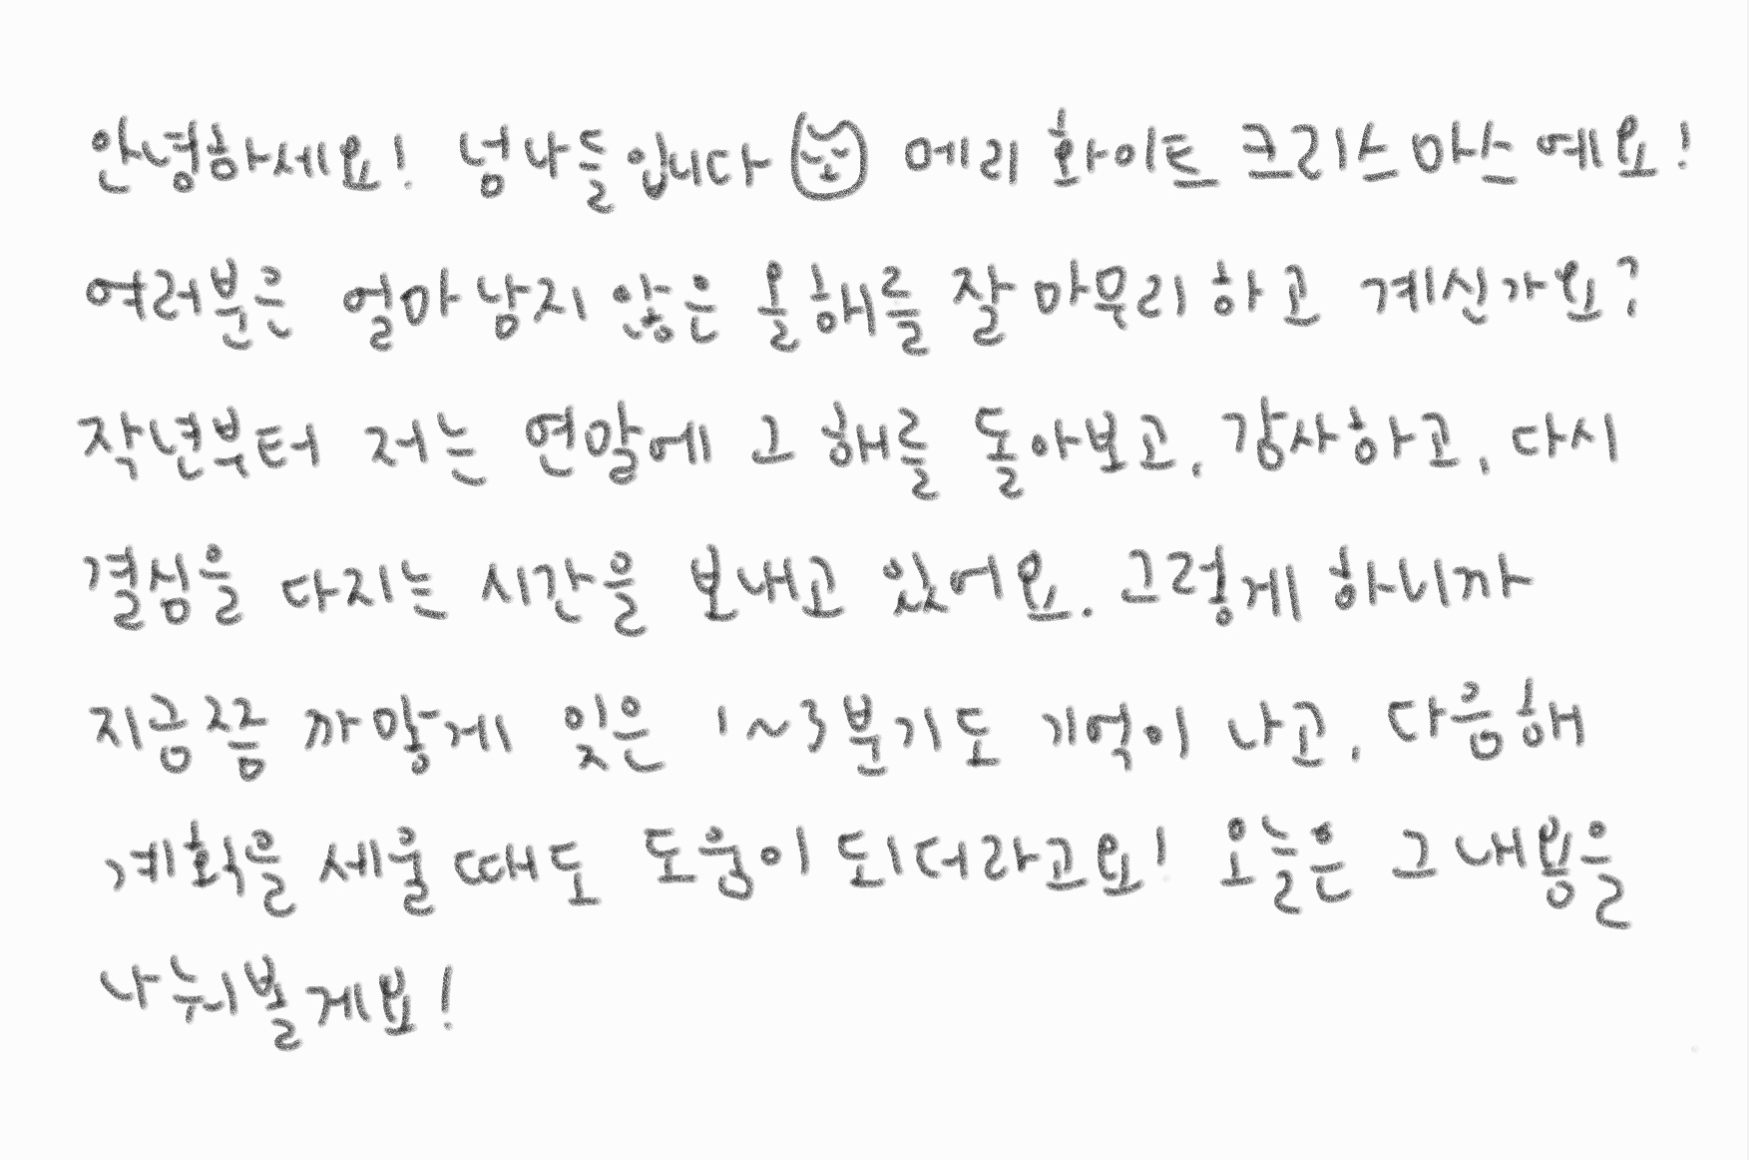 안녕하세요! 넘나들입니다 메리 화이트 크리스마스예요!
여러분은 얼마 남지 않은 올해를 잘 마무리하고 계신가요?
작년부터 저는 연말에 그 해를 돌아보고, 감사하고, 다시
결심을 다지는 시간을 보내고 있어요. 그렇게 하니까
지금쯤 까맣게 잊은 1~3분기도 기억이 나고, 다음해
계획을 세울 때도 도움이 되더라고요! 오늘은 그 내용을
나눠볼게요!